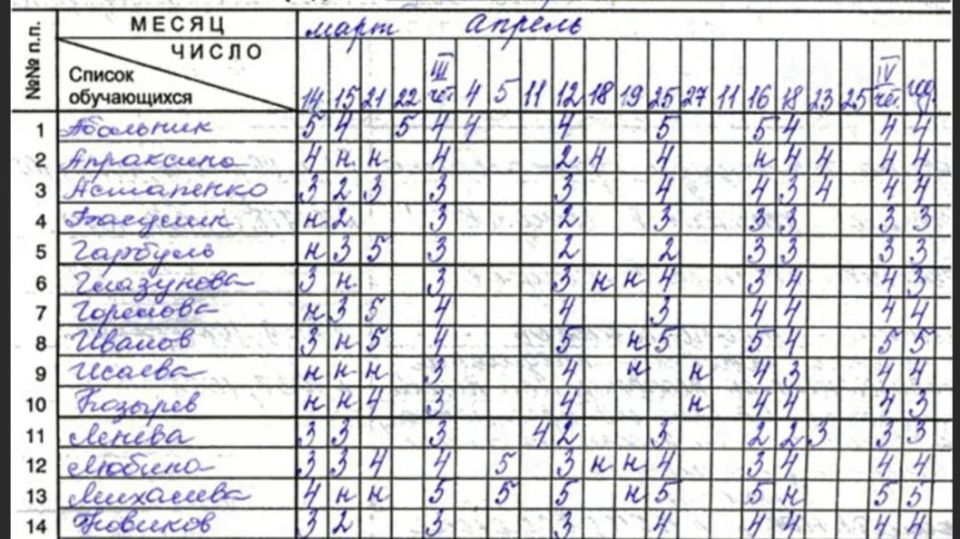 МЕСЯЦ март Апрель
ЧИСЛО
№№ п.п. Список обучающихся 14 15 21 22 III чет 4 5 11 12 18 19 25 27 11 16 18 23 25 IV чет. год
1 Абальник 5 4 5 4 4 4 5 5 4 4 4
2 Апраксина 4 н н 4 2 4 4 н 4 4 4 4
3 Астапенко 3 2 3 3 3 4 4 3 4 4 4
4 н 2 3 2 3 3 3 3 3
5 Гарбуль н 3 5 3 2 2 3 3 3 3
6 Глазунова 3 н 3 3 н н 4 3 4 4 3
7 Горелова н 3 5 4 4 3 4 4 4 4
8 Иванов 3 н 5 4 5 н 5 5 4 5 5
9 Исаева н н н 3 4 н н 4 3 4 4
10 Козырев н н 4 3 4 н 4 4 4 3
11 Ленева 3 3 3 4 2 3 2 2 3 3 3
12 Любина 3 3 4 4 5 3 н н 4 3 4 4 4
13 Михалева 4 н н 5 5 5 н 5 5 н 5 5
14 Новиков 3 2 3 3 4 4 4 4 4